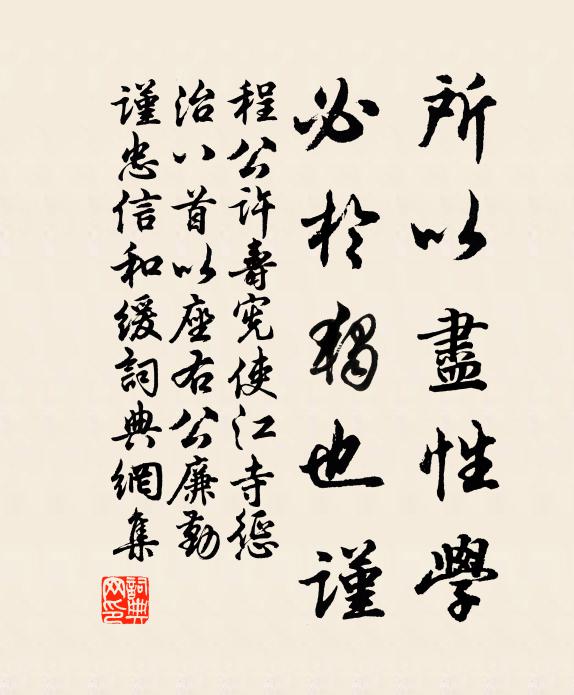 所以盡性學
必於獨也謹
程公許壽憲使江寺丞
治八首以座右公廉勤
謹忠信和緩詞典網集
詞典網印